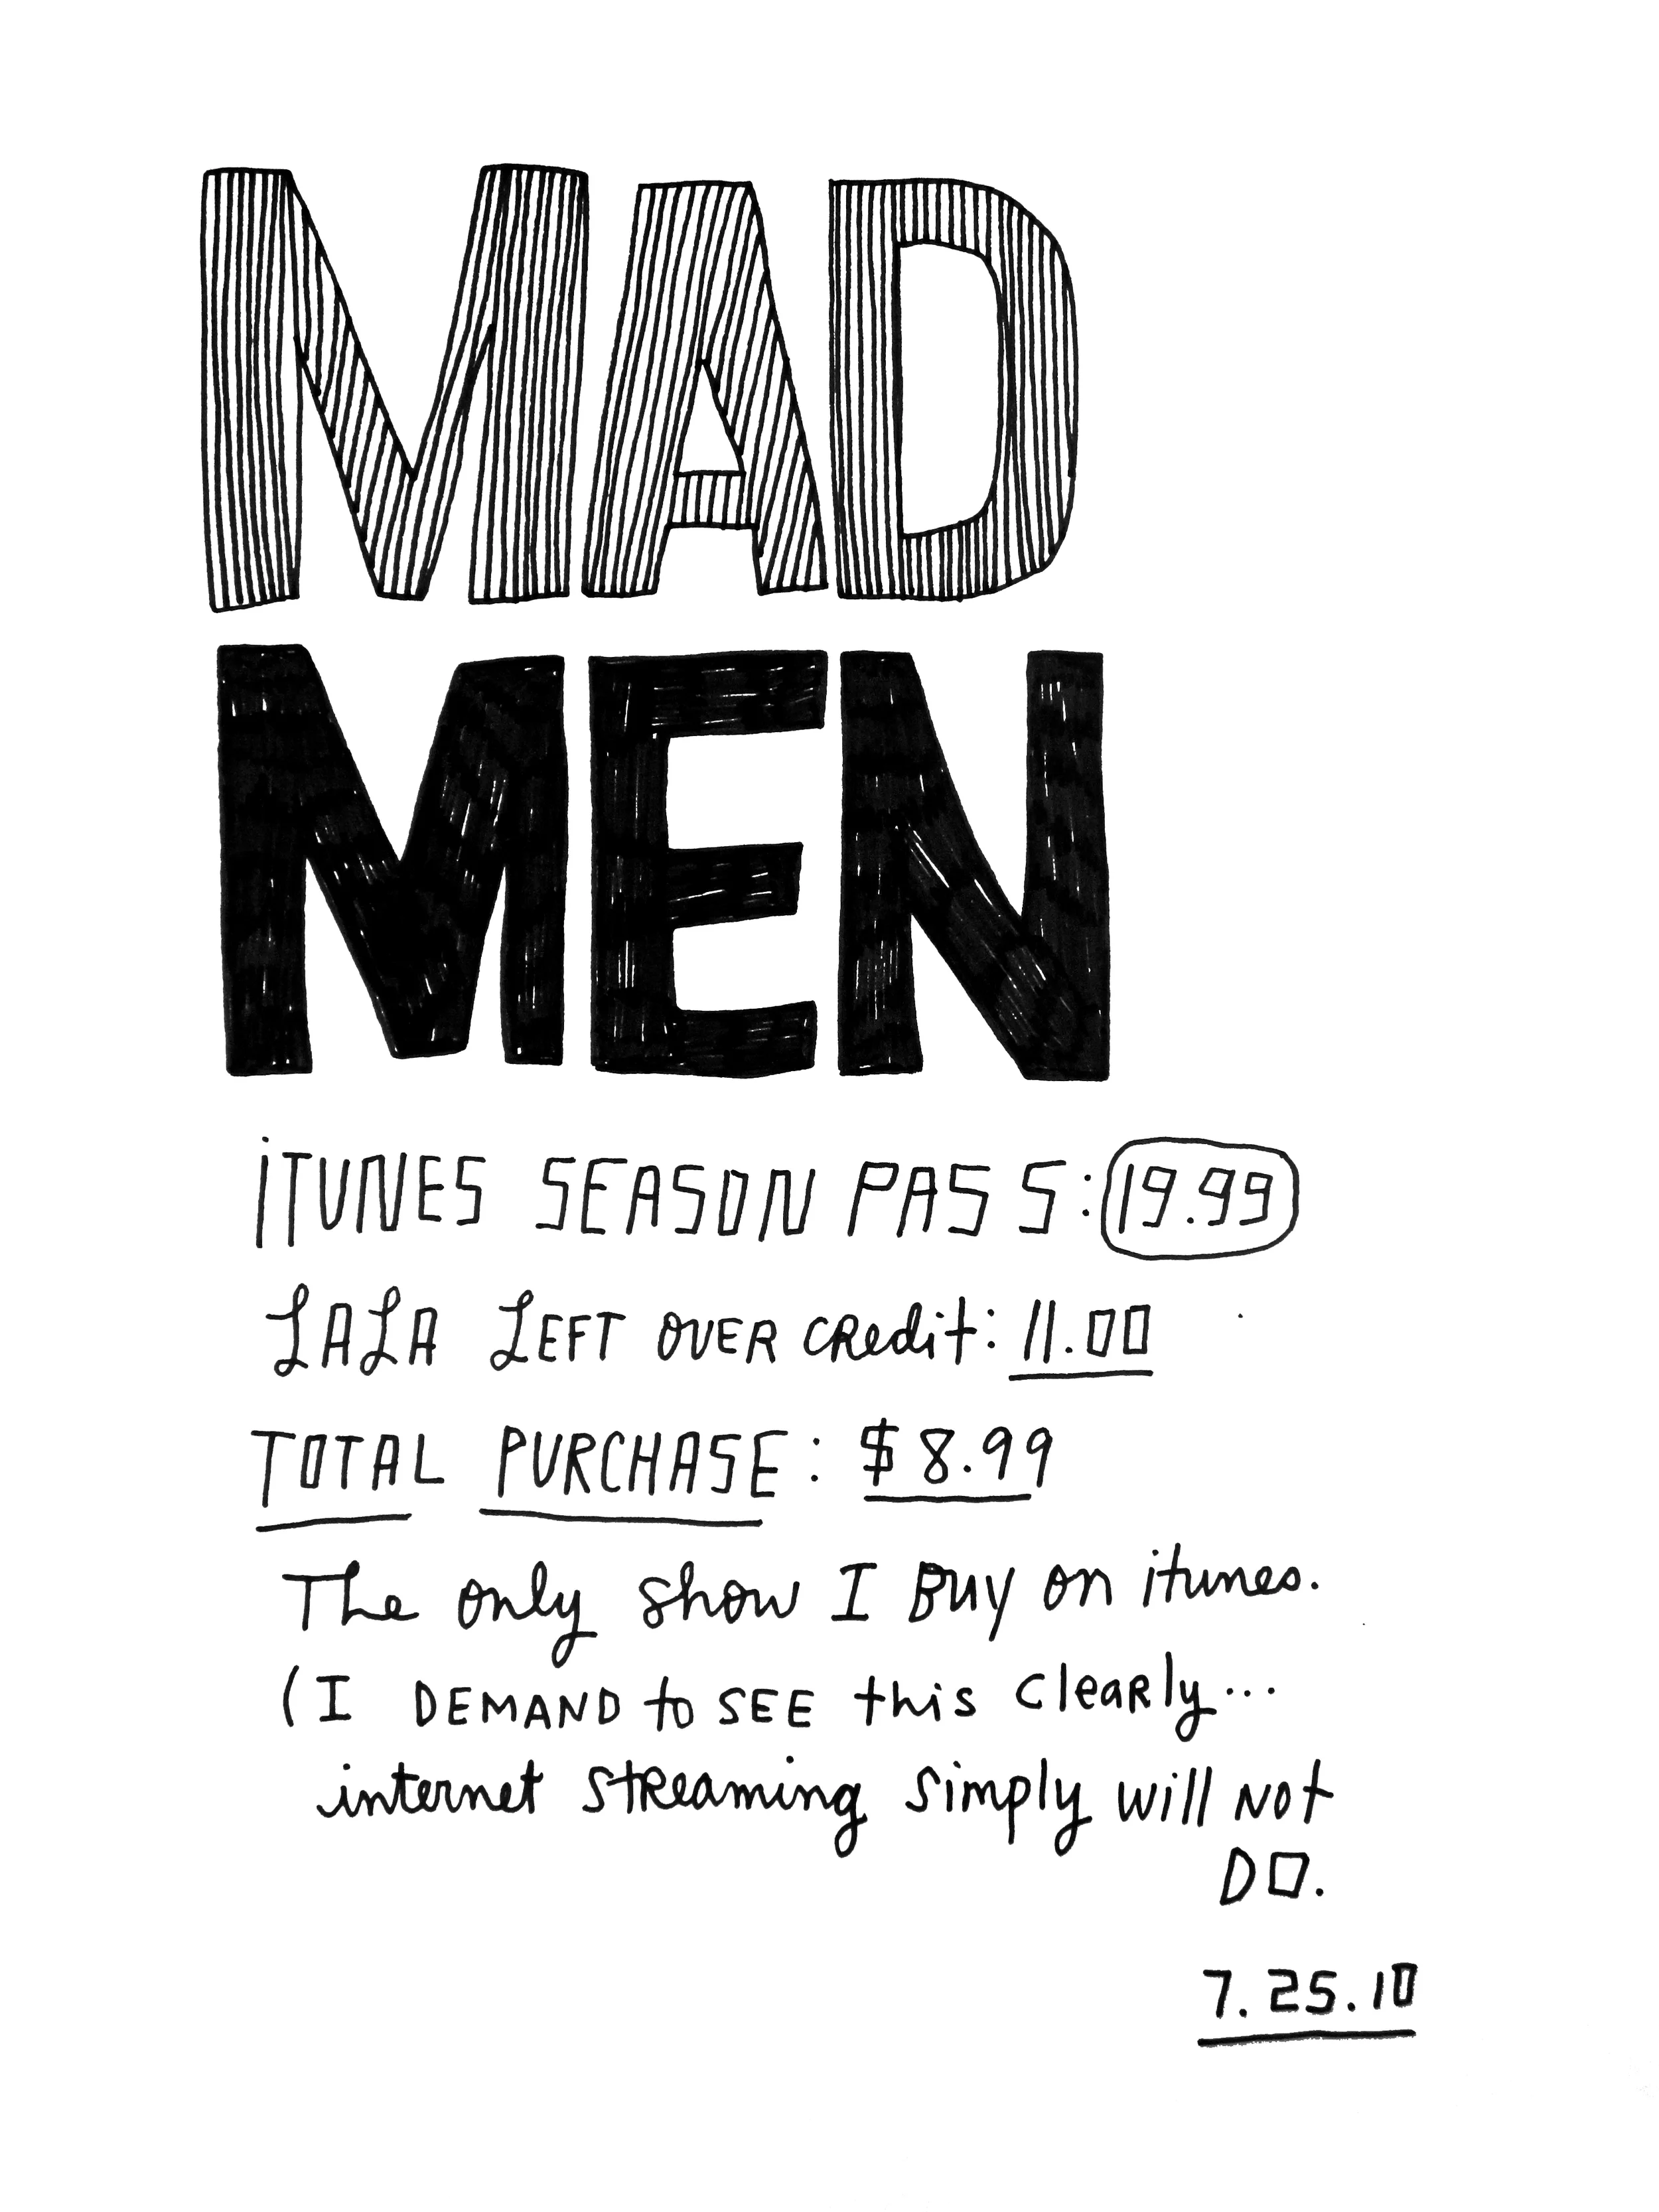 MAD
MEN
iTUNES SEASON PASS: 19.99
LALA LEFT OVER CRedit: 11.00
TOTAL PURCHASE: $8.99
The only show I Buy on itunes.
(I DEMAND to SEE this cleaRly...
internet stReaming simply will Not
DO.
7.25.10